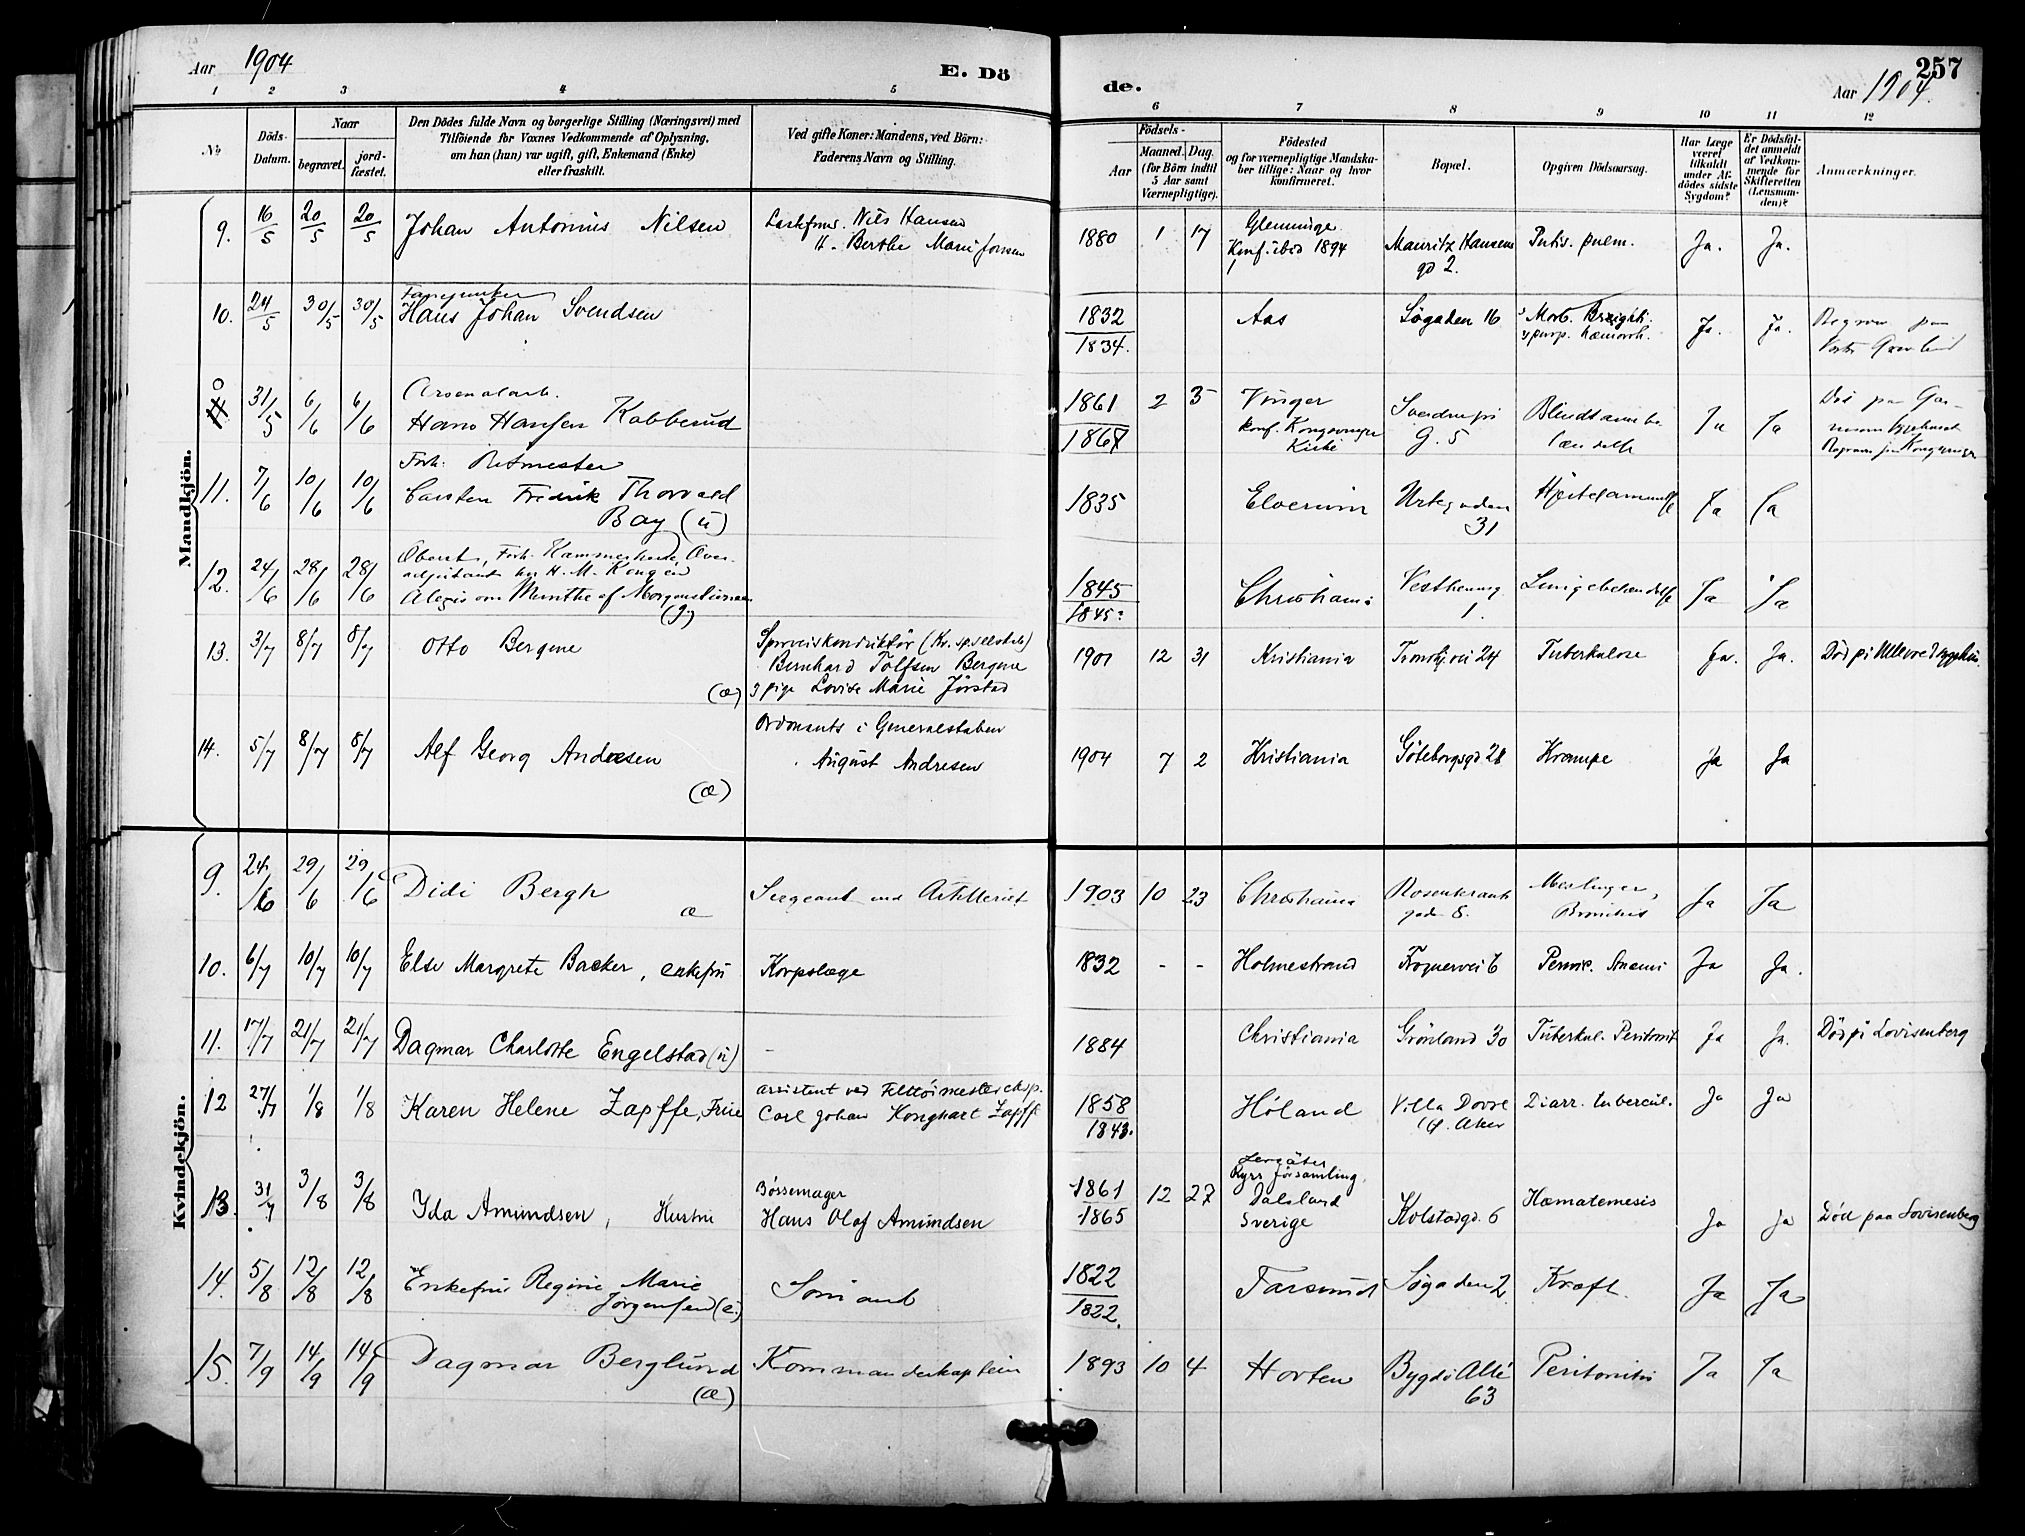 Aar 1904
E. Dö
de.
257
Aar 1904.
1 2 3 4 5
6 7 8 9 10 11 12
No
Döds-Datum.
Naar
begravet.
jord-fæstet.
Den Dödes fulde Navn og borgerlige Stilling (Næringsvei) med
Tilföiende for Voxnes Vedkommende af Oplysning,
om han (hun) var ugift, gift, Enkemand (Enke)
eller fraskilt.
Ved gifte Koner: Mandens, ved Börn:
Faderens Navn og Stilling.
Födsels-
Aar
Maaned. Dag.
(for Börn indtil
5 Aar samt
Værnepligtige).
Födested
og for værnepligtige Mandska-
ber tillige: Naar og hvor
konfirmeret.
Bopæl.
Opgiven Dödsaarsag.
Har Læge
været
tilkaldt
under Af-
dödes sidste
Sygdom?
Er Dödsfal-
det anmeldt
af Vedkom-
mende for
Skifteretten
(Lensman-
den)?
Anmærkninger.
Mandkjön.
9. 16/5 20/5 20/5 Johan Antonius Nilsen
Nils Hansen
Berthe Marie Jonsen
1880 1 17 Glemminge
Konf. ibid 1894
Mauritz Hansens
gd 2.
pulm. Ja. Ja.
10. 24/5 30/5 30/5
Hans Johan Svendsen
1832
1834.
Aas Søgaden 16 Morb. Brightii
purp. hæmorrh. Ja. Ja.
0 31/5 6/6 6/6 Arsenalarb.
Hans Hansen Kobberud
1861 2 5
1867
Vinger
konf. Kongsvinger
Kirke
G. 5
Ja Ja
11. 7/6 10/6 10/6 Forh. Ritmester
Carsten Fredrik Thorvald
Bay (u)
1835 Elverum Urtegaden
31
Ja Ja
12. 24/6 28/6 28/6 Oberst, Forh. Kammerherre, Over-
adjutant hos H. M. Kongen
Munthe af Morgenstierne
(g)
1845
1845?
Christiania
1.
Ja Ja
13. 3/7 8/7 8/7 Otto Bergene
(æ)
Sporveiskonduktør (Kr. sp. selskab)
Bernhard Tolfsen Bergene
g pige Lovise Marie Jørstad
1901 12 31 Kristiania 24 Tuberkulose Ja. Ja. Død på Ullevoed sygehus.
14. 5/7 8/7 8/7 Alf Georg Andresen
(æ)
Ordonants i Generalstaben
August Andresen
1904 7 2 Kristiania Göteborgsgd 28 Krampe Ja Ja
Kvindekjön.
9. 24/6 29/6 29/6 Didi Bergh
æ
Sergeant ved Artilleriet
1903 10 23 Christiania Rosenkrantz
gade 8.
Meslinger,
Ja Ja
10. 6/7 10/7 10/7 Else Margrete Backer, enkefru Korpslæge
1832 - - Holmestrand Frognervei 6 Pernic. Anæmi Ja Ja.
11. 17/7 21/7 21/7 Dagmar Charlotte Engelstad (u) -
1884 Christiania Grönland 30 Tuberkul. Peritonit Ja Ja. Död på Lovisenberg
12 27/7 1/8 1/8 Karen Helene Zapffe, Frue
assistent ved Felttöimesterexp.
Carl Johan Zapffe
1858
1843.
Höland Villa Dovre
Aker
Diarr. tubercul. Ja Ja
13. 31/7 3/8 3/8 Ida Amundsen, Hustru
Bössemager
Hans Olaf Amundsen
1861 12 27
1865
församling,
Dalsland
Sverige
Kolstadgd. 6 Hæmatemesis Ja Ja Död paa Lovisenberg
14. 5/8 12/8 12/8 Enkefru Regine Marie
Jørgensen (e.)
1822
1822.
Farsund Søgaden 2. Kræft. Ja Ja
15. 7/9 14/9 14/9 Dagmar Berglund
(æ)
Kommandørkaptein
1893 10 4 Horten Bygdö Allé
63
Peritonitis Ja Ja